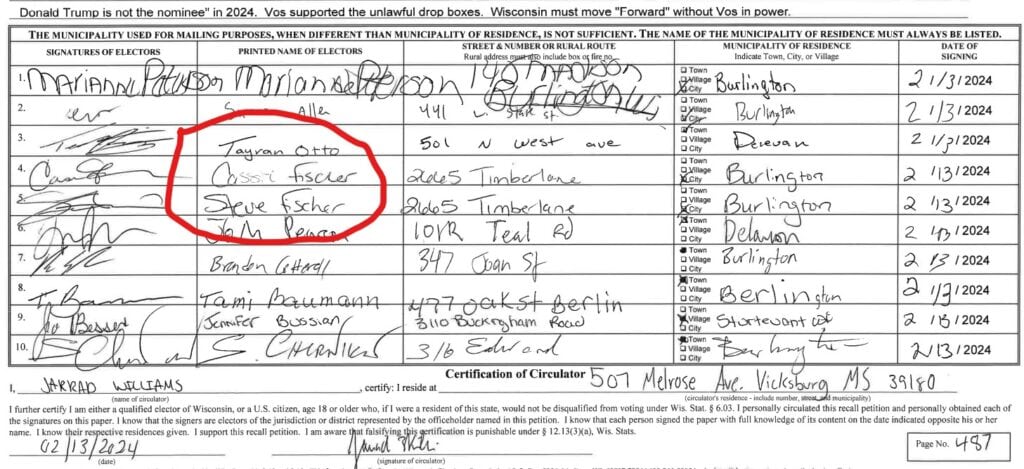 Donald Trump is not the nominee" in 2024. Vos supported the unlawful drop boxes. Wisconsin must move "Forward" without Vos in power.
THE MUNICIPALITY USED FOR MAILING PURPOSES, WHEN DIFFERENT THAN MUNICIPALITY OF RESIDENCE, IS NOT SUFFICIENT. THE NAME OF THE MUNICIPALITY OF RESIDENCE MUST ALWAYS BE LISTED.
SIGNATURES OF ELECTORS PRINTED NAME OF ELECTORS STREET & NUMBER OR RURAL ROUTE Rural address must also include box or fire no. MUNICIPALITY OF RESIDENCE Indicate Town, City, or Village DATE OF SIGNING
1. MARIANNE Marianne Peterson 148 MADISON Burlington Town Village City Burlington 2/13/2024
2. Allen 441 State St. Town Village City Burlington 2/13/2024
3. Tayran Otto 501 N West ave Town Village City Delevan 2/13/2024
4. Cassie Fischer 2665 Timberlane Town Village City Burlington 2/13/2024
5. Steve Fischer 2665 Timberlane Town Village City Burlington 2/13/2024
6. John Teal Rd Town Village City 2/13/2024
7. Brandon 347 Joan St Town Village City Burlington 2/13/2024
8. Tami Baumann 477 OAK St Berlin Town Village City Berlington 2/13/2024
9. Jo Bessed Jennifer Bussian 3110 Buckingham Road Town Village City Sturtevant 2/13/2024
10. S. 316 Edward Town Village City 2/13/2024
Certification of Circulator
I, JARRAD WILLIAMS, certify: I reside at 507 Melrose Ave. Vicksburg MS 39180
(name of circulator) (circulator's residence - include number, street, and municipality)
I further certify I am either a qualified elector of Wisconsin, or a U.S. citizen, age 18 or older who, if I were a resident of this state, would not be disqualified from voting under Wis. Stat. § 6.03. I personally circulated this recall petition and personally obtained each of
the signatures on this paper. I know that the signers are electors of the jurisdiction or district represented by the officeholder named in this petition. I know that each person signed the paper with full knowledge of its content on the date indicated opposite his or her
name. I know their respective residences given. I support this recall petition. I am aware that falsifying this certification is punishable under § 12.13(3)(a), Wis. Stats.
02/13/2024
(date) (signature of circulator)
Page No. 487